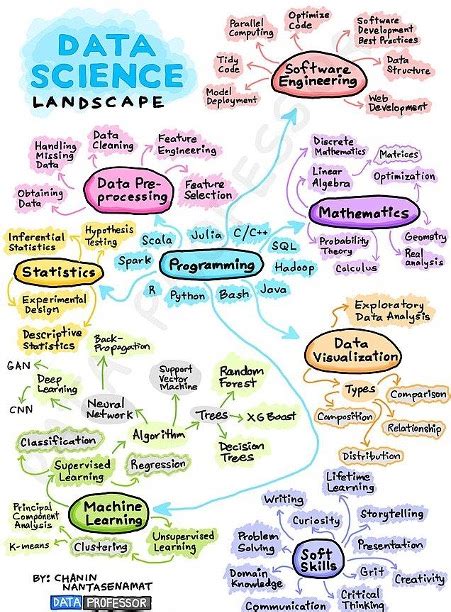 DATA
SCIENCE
LANDSCAPE
Parallel
Computing
Optimize
Code
Software
Development
Best Practices
Tidy
Code
Software
Engineering
Data
Structure
Model
Deployment
Web
Development
Handling
Missing
Data
Data
Cleaning
Feature
Engineering
Obtaining
Data
Data Pre-
processing
Feature
Selection
Discrete
Mathematics
Matrices
Linear
Algebra
Optimization
Mathematics
Probability
Theory
Geometry
Calculus
Real
analysis
Inferential
Statistics
Hypothesis
Testing
Statistics
Experimental
Design
Descriptive
Statistics
Scala
Julia
C/C++
SQL
Spark
Programming
Hadoop
R
Python
Bash
Java
Exploratory
Data Analysis
Data
Visualization
Types
Comparison
Composition
Relationship
Distribution
GAN
Deep
Learning
CNN
Back-
Propagation
Neural
Network
Support
Vector
Machine
Random
Forest
Trees
XG Boost
Algorithm
Decision
Trees
Classification
Supervised
Learning
Regression
Principal
Component
Analysis
Machine
Learning
K-means
Clustering
Unsupervised
Learning
Lifetime
Learning
Writing
Curiosity
Storytelling
Problem
Solving
Soft
Skills
Presentation
Domain
Knowledge
Grit
Creativity
Communication
Critical
Thinking
BY: CHANIN
NANTASENAMAT
DATA PROFESSOR